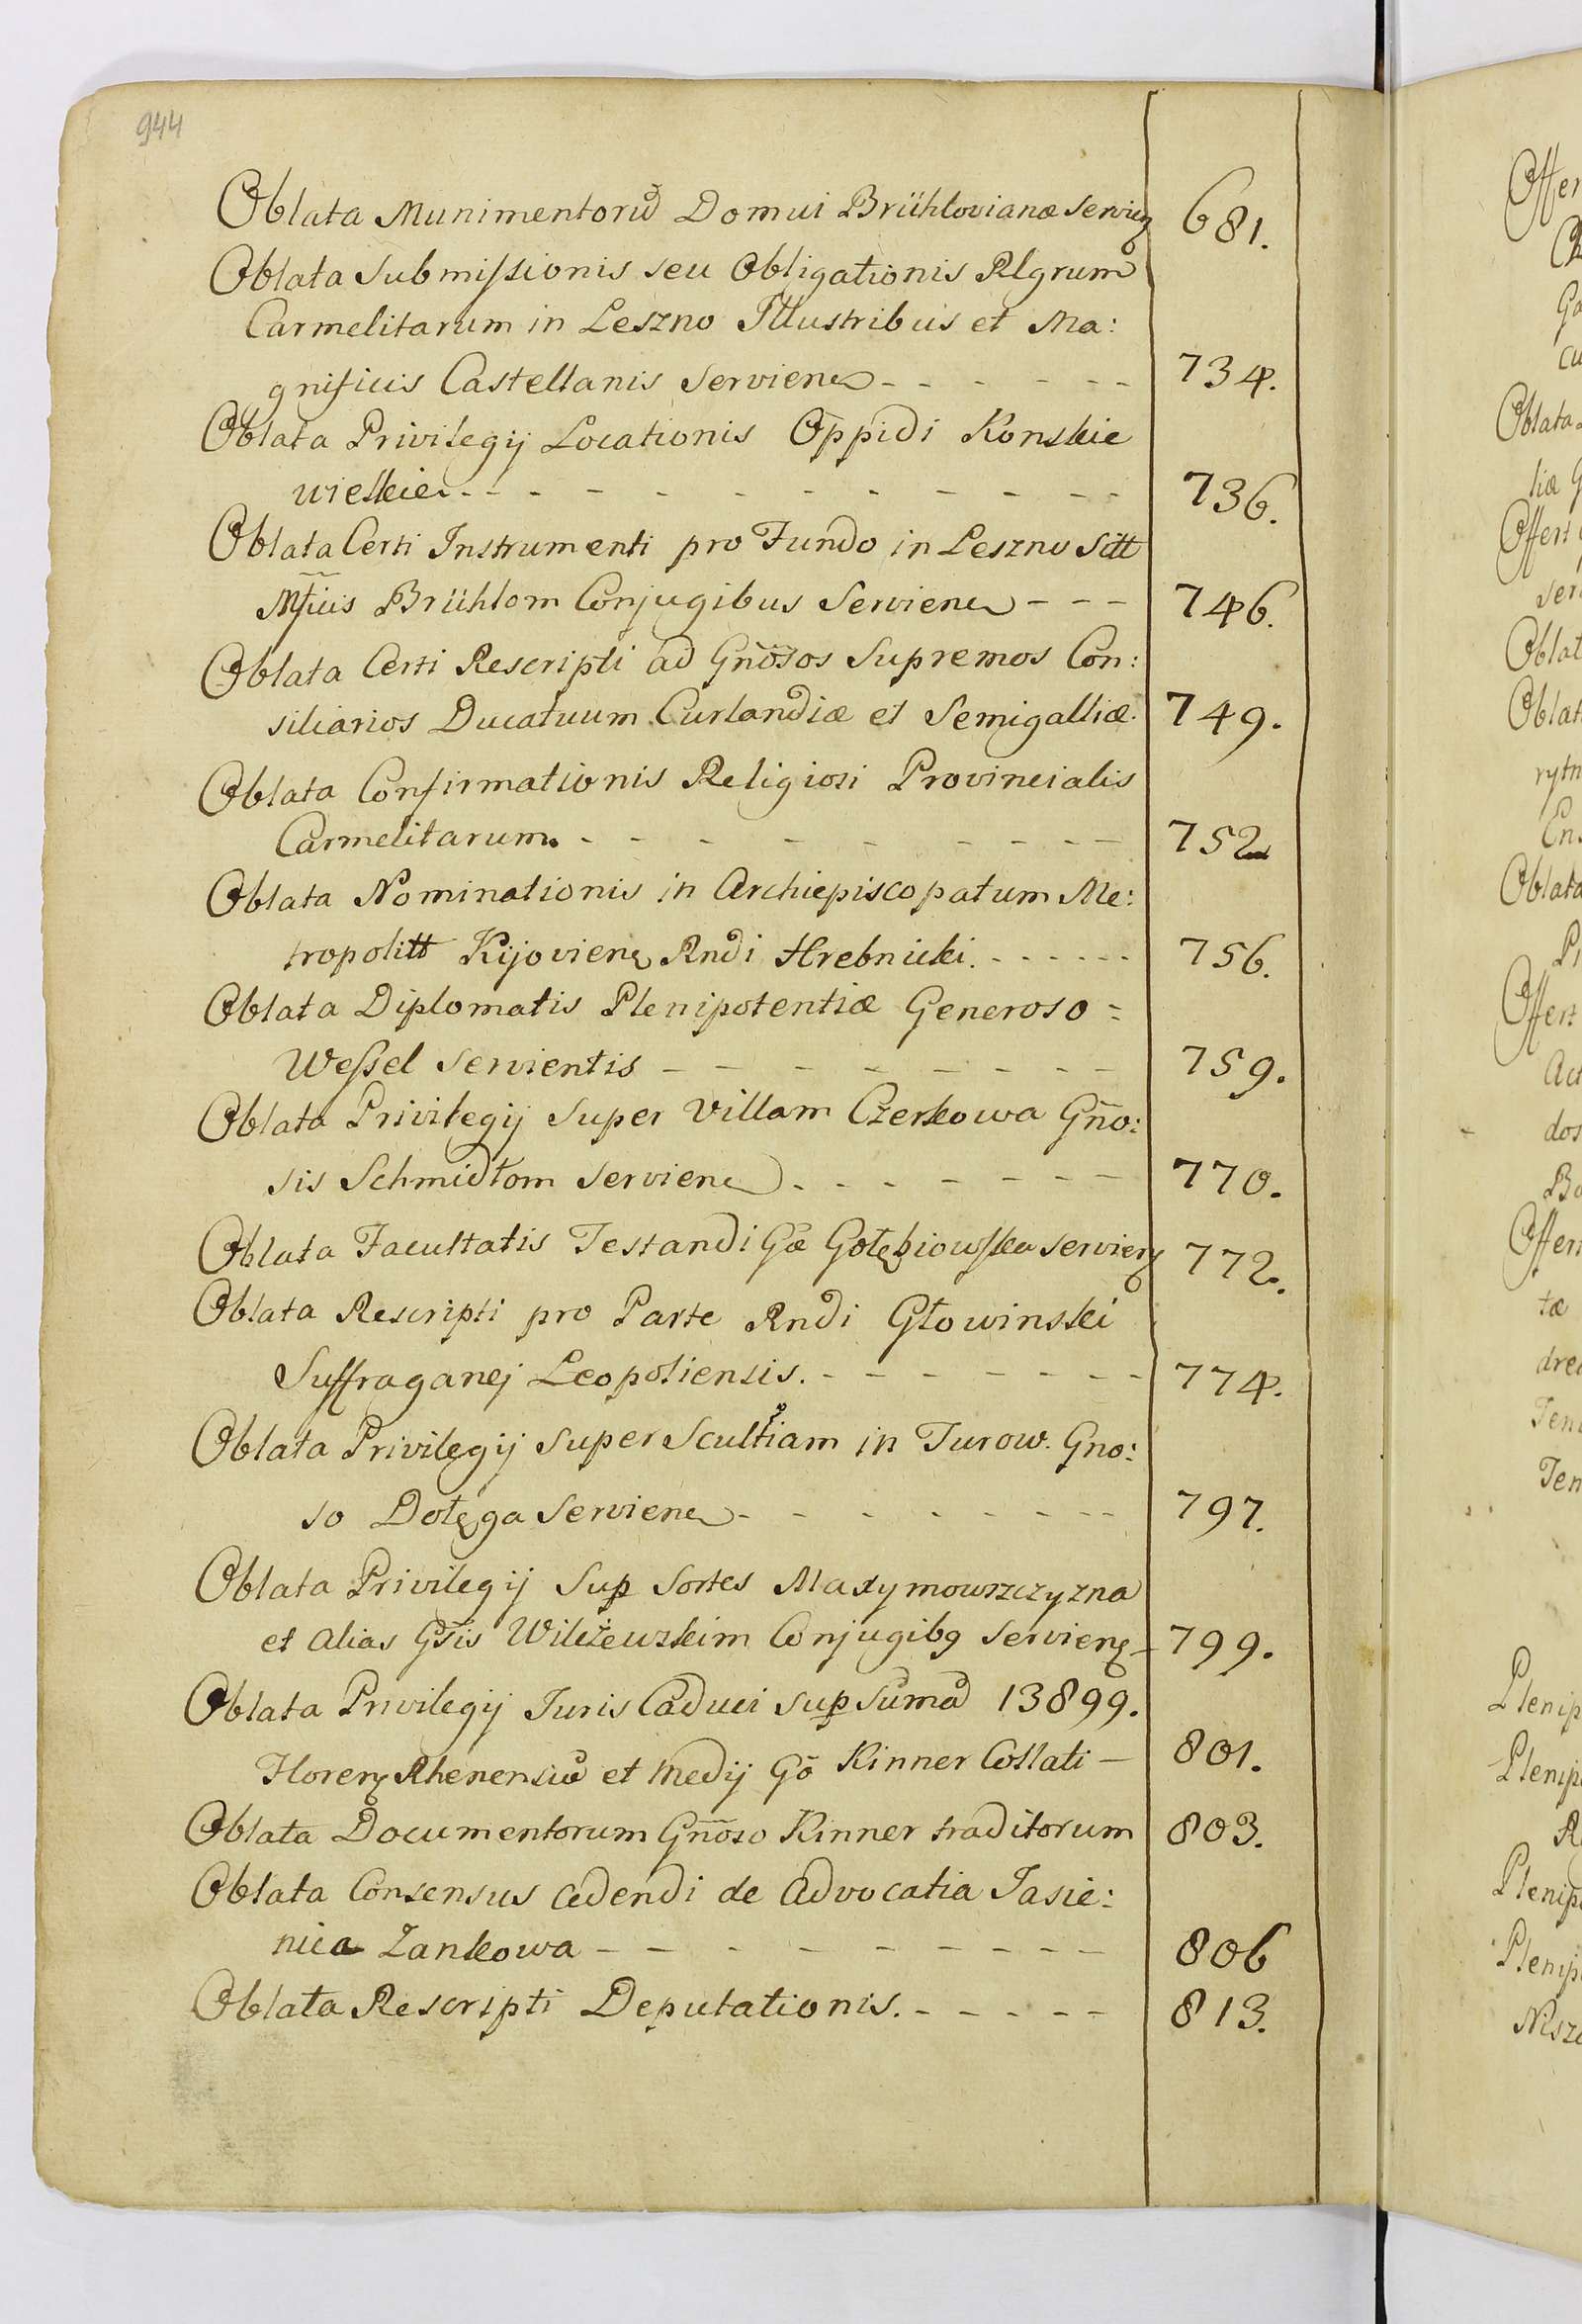 944
Oblata Munimentorũ Domui Brühlovianæ Servien 681.
Oblata Submissionis seu Obligationis Rlgrum
Carmelitarum in Leszno Illustribus et Ma:
gnificis Castellanis Servien - - - - - - 734.
Oblata Privilegij Locationis Oppidi Konskie
wielkie - - - - - - - - - - 736.
Oblata Certi Instrumenti pro Fundo in Leszno Sitt
Mficis Brühlom Conjugibus Servien - - - 746.
Oblata Certi Rescripti ad Gnosos Supremos Con:
siliarios Ducatuum Curlandiæ et Semigalliæ. 749.
Oblata Confirmationis Religiosi Provincialis
Carmelitarum - - - - - - - - - 752
Oblata Nominationis in Archiepiscopatum Me:
tropolitt Kijovien Rndi Hrebnicki. - - - - - - 756.
Oblata Diplomatis Plenipotentiæ Generoso =
Wessel Servientis - - - - - - - - 759.
Oblata Privilegij Super Villam Czerkowa Gño:
sis Schmidtom Servien - - - - - - - - 770.
Oblata Facultatis Testandi Gæ Gołębiowska Servien 772.
Oblata Rescripti pro Parte Rndi Głowinski
Suffraganej Leopoliensis. - - - - - - - - 774.
Oblata Privilegij Super Scultiam in Turow. Gno:
so Dołęga Servien - - - - - - - - 797.
Oblata Privilegij Sup Sortes Maxymowszczyzna
et alias Gsis Wilczewskim Conjugibg Servien - 799.
Oblata Privilegij Juris Caduci sup Sumã 13899.
Floren Rhenensiũ et Medij Gõ Kinner Collati - 801.
Oblata Documentorum Gnoso Kinner traditorum 803.
Oblata Consensus cedendi de Advocatia Jasie:
nica Zankowa - - - - - - - - - 806
Oblata Rescripti Deputationis. - - - - - 813.
Offer
Ga
cu
Oblata
liæ G
Offert
ser
Oblat
Oblat
rytn
En
Oblata
Offert
Act
dos
Bo
Offer
tæ
drea
Ten
Ten
Plenip
Plenip
Plenip
Plenip
Nisz